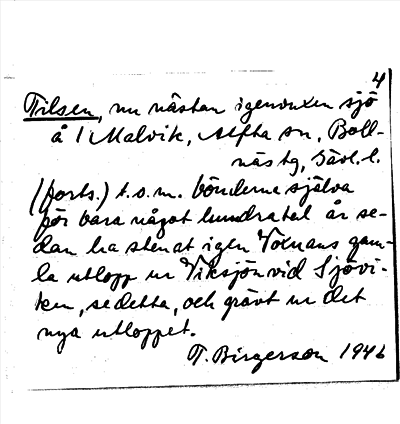 4
Tilsen, nu nästan igenvuxen sjö
å 1 Malvik, Alfta sn, Boll-
näs tg, Gävl. l.
(forts.) t.o.m. bönderna själva
för bara något hundratal år se-
dan ha stenat igen Voxnans gam-
la utlopp ur Viksjön vid Sjövi-
ken, se detta, och grävt ur det
nya utloppet.
T. Birgerson 1946